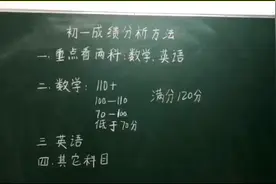 初一成绩分析方法
一、重点看两科:数学、英语
二、数学: 110+
100—110 满分120分
70—100
低于70分
三 英语
四.其它科目